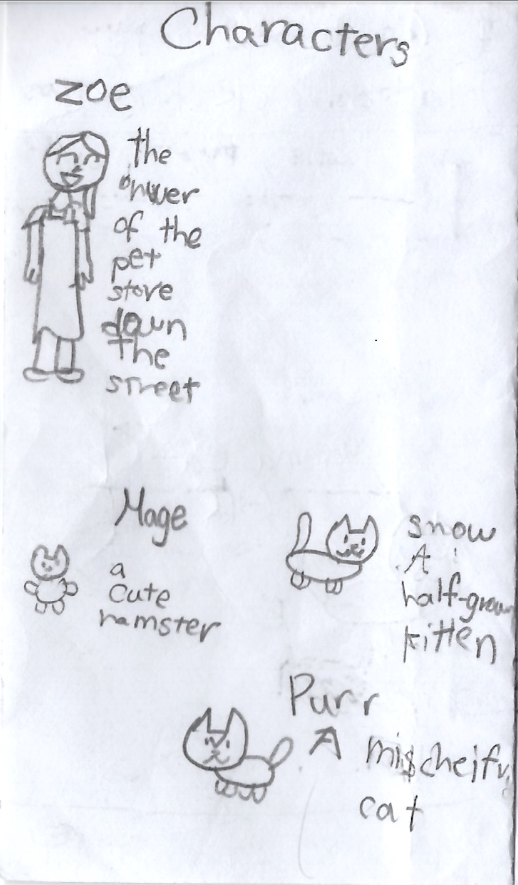 Characters
zoe
the
onwer
of the
pet
store
down
the
street
Mage
a
cute
hamster
snow
A
half-grown
kitten
Purr
A mischeify
cat